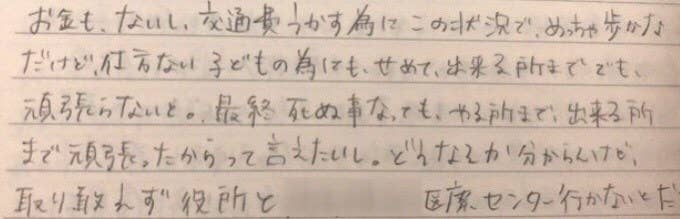 お金も、ないし、交通費うかす為に この状況で、めっちゃ歩かな
だけど、仕方ない 子どもの為にも、せめて、出来る所まででも、
頑張らないと。最終 死ぬ事なっても、やる所まで、出来る所
まで頑張ったからって言えたいし。どうなるか分からんけど、
取り敢えず 役所と 医療センター行かないとだ